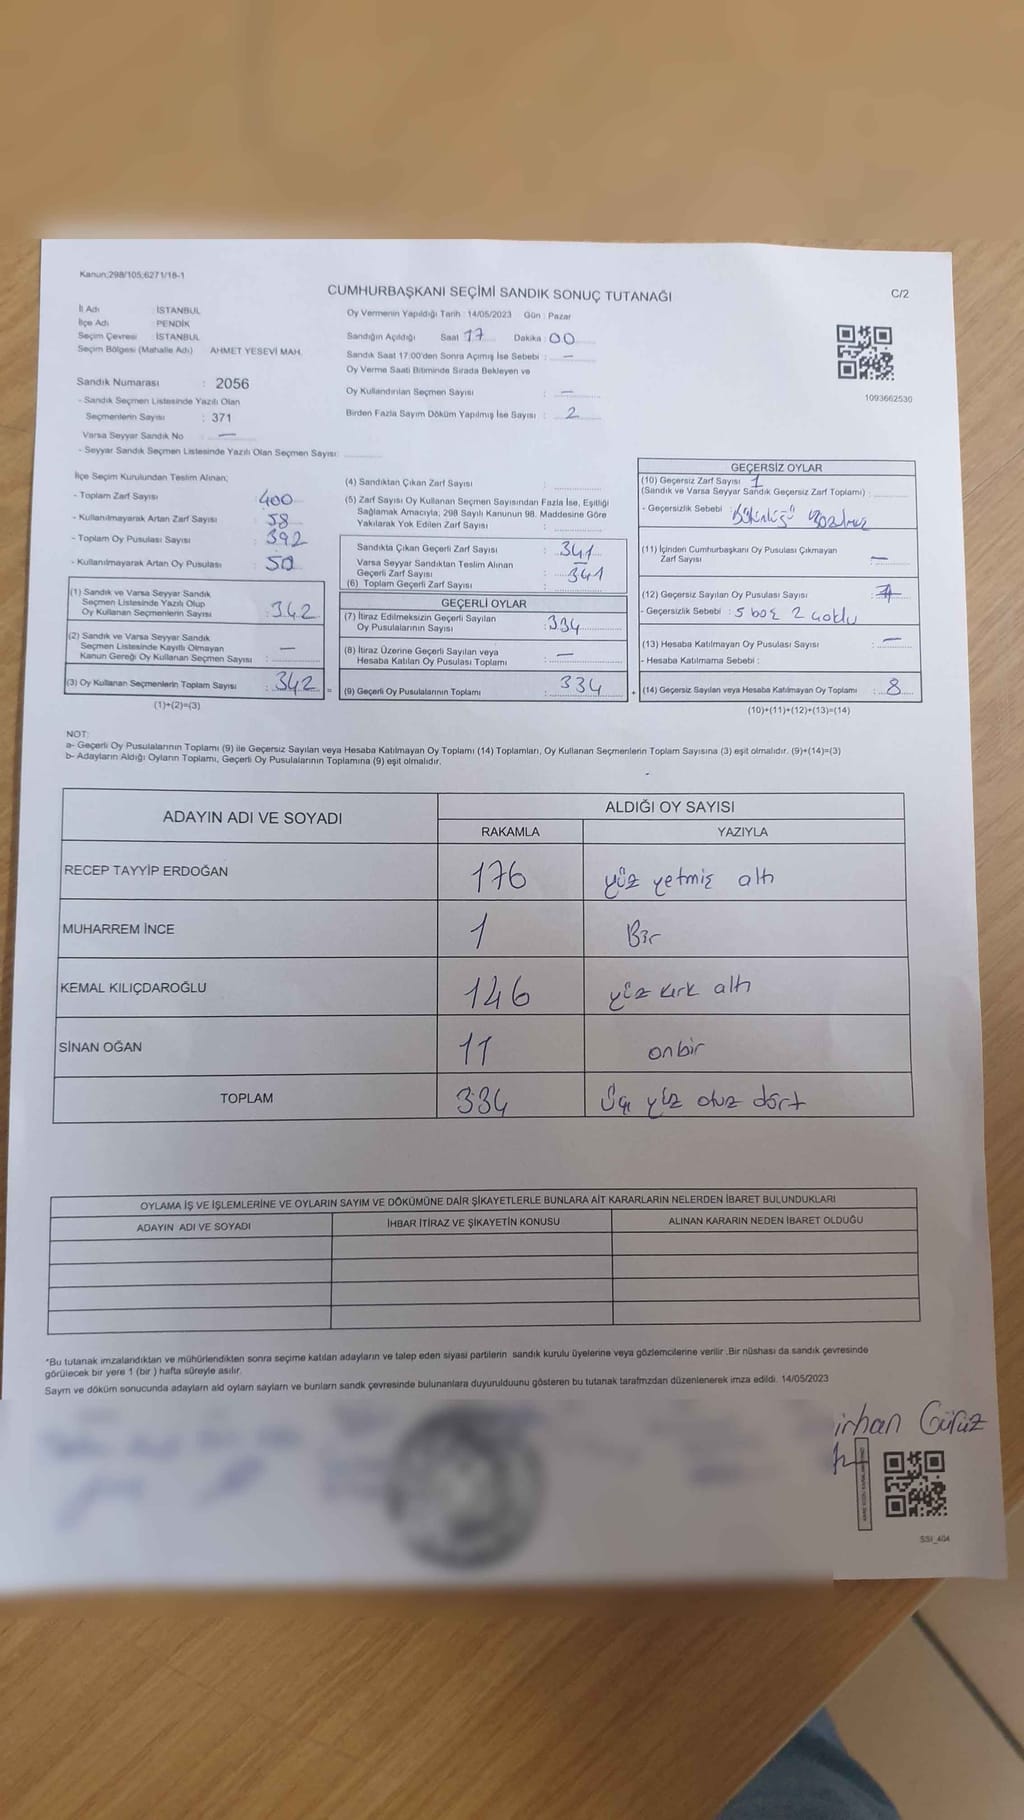 Kanun;298/105;6271/18-1
CUMHURBAŞKANI SEÇİMİ SANDIK SONUÇ TUTANAĞI
C/2
İl Adı İSTANBUL
İlçe Adı PENDİK
Seçim Çevresi İSTANBUL
Seçim Bölgesi (Mahalle Adı) AHMET YESEVİ MAH.
Sandık Numarası : 2056
- Sandık Seçmen Listesinde Yazılı Olan
Seçmenlerin Sayısı : 371
Varsa Seyyar Sandık No : —
- Seyyar Sandık Seçmen Listesinde Yazılı Olan Seçmen Sayısı:
Oy Vermenin Yapıldığı Tarih : 14/05/2023 Gün : Pazar
Sandığın Açıldığı Saat 17 Dakika : 00
Sandık Saat 17:00'den Sonra Açımış İse Sebebi : —
Oy Verme Saati Bitiminde Sırada Bekleyen ve
Oy Kullandırılan Seçmen Sayısı : —
Birden Fazla Sayım Döküm Yapılmış İse Sayısı : 2
1093662530
İlçe Seçim Kurulundan Teslim Alınan;
- Toplam Zarf Sayısı 400
- Kullanılmayarak Artan Zarf Sayısı : 58
- Toplam Oy Pusulası Sayısı : 392
- Kullanılmayarak Artan Oy Pusulası : 50
(1) Sandık ve Varsa Seyyar Sandık
Seçmen Listesinde Yazılı Olup
Oy Kullanan Seçmenlerin Sayısı : 342
(2) Sandık ve Varsa Seyyar Sandık
Seçmen Listesinde Kayıtlı Olmayan
Kanun Gereği Oy Kullanan Seçmen Sayısı : —
(3) Oy Kullanan Seçmenlerin Toplam Sayısı : 342 =
(1)+(2)=(3)
(4) Sandıktan Çıkan Zarf Sayısı :
(5) Zarf Sayısı Oy Kullanan Seçmen Sayısından Fazla İse, Eşitliği
Sağlamak Amacıyla; 298 Sayılı Kanunun 98. Maddesine Göre
Yakılarak Yok Edilen Zarf Sayısı :
Sandıkta Çıkan Geçerli Zarf Sayısı : 341
Varsa Seyyar Sandıktan Teslim Alınan
Geçerli Zarf Sayısı : —
(6) Toplam Geçerli Zarf Sayısı : 341
GEÇERLİ OYLAR
(7) İtiraz Edilmeksizin Geçerli Sayılan
Oy Pusulalarının Sayısı : 334
(8) İtiraz Üzerine Geçerli Sayılan veya
Hesaba Katılan Oy Pusulası Toplamı : —
(9) Geçerli Oy Pusulalarının Toplamı : 334 +
GEÇERSİZ OYLAR
(10) Geçersiz Zarf Sayısı 1
(Sandık ve Varsa Seyyar Sandık Geçersiz Zarf Toplamı) :
- Geçersizlik Sebebi :
(11) İçinden Cumhurbaşkanı Oy Pusulası Çıkmayan
Zarf Sayısı : —
(12) Geçersiz Sayılan Oy Pusulası Sayısı : 7
- Geçersizlik Sebebi : 5 boş 2 çoklu
(13) Hesaba Katılmayan Oy Pusulası Sayısı : —
- Hesaba Katılmama Sebebi :
(14) Geçersiz Sayılan veya Hesaba Katılmayan Oy Toplamı : 8
(10)+(11)+(12)+(13)=(14)
NOT:
a- Geçerli Oy Pusulalarının Toplamı (9) ile Geçersiz Sayılan veya Hesaba Katılmayan Oy Toplamı (14) Toplamları, Oy Kullanan Seçmenlerin Toplam Sayısına (3) eşit olmalıdır. (9)+(14)=(3)
b- Adayların Aldığı Oyların Toplamı, Geçerli Oy Pusulalarının Toplamına (9) eşit olmalıdır.
ADAYIN ADI VE SOYADI ALDIĞI OY SAYISI
RAKAMLA YAZIYLA
RECEP TAYYİP ERDOĞAN 176 yüz yetmiş altı
MUHARREM İNCE 1 Bir
KEMAL KILIÇDAROĞLU 146 yüz kırk altı
SİNAN OĞAN 11 onbir
TOPLAM 334 Üç yüz otuz dört
OYLAMA İŞ VE İŞLEMLERİNE VE OYLARIN SAYIM VE DÖKÜMÜNE DAİR ŞİKAYETLERLE BUNLARA AİT KARARLARIN NELERDEN İBARET BULUNDUKLARI
ADAYIN ADI VE SOYADI İHBAR İTİRAZ VE ŞİKAYETİN KONUSU ALINAN KARARIN NEDEN İBARET OLDUĞU
*Bu tutanak imzalandıktan ve mühürlendikten sonra seçime katılan adayların ve talep eden siyasi partilerin sandık kurulu üyelerine veya gözlemcilerine verilir .Bir nüshası da sandık çevresinde
görülecek bir yere 1 (bir ) hafta süreyle asılır.
Sayım ve döküm sonucunda adayların ald oyların sayların ve bunların sandk çevresinde bulunanlara duyurulduunu gösteren bu tutanak tarafmzdan düzenlenerek imza edildi. 14/05/2023
irhan Gürüz
SSI_404